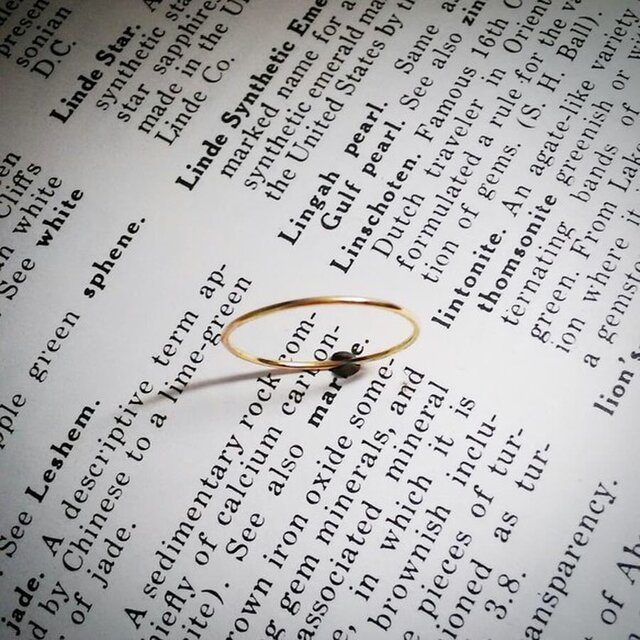 present
sonian
D.C.
Linde Star. A
synthetic star
star sapphire
made in the U
Linde Co.
Linde Synthetic Eme
marked name for a
synthetic emerald ma
the United States by t
Lingah pearl. Same a
Gulf pearl. See also zin
Linschoten. Famous 16th C
Dutch traveler in Orien
formulated a rule for the va
tion of gems. (S. H. Ball).
lintonite. An agate-like variety
thomsonite greenish or w
ternating bands of
green. From Lake
ion where it
a gemst
lion's
Cliffs
n white
See white
ple green sphene.
See Leshem.
jade. A descriptive term ap-
d by Chinese to a lime-green
of jade.
A sedimentary rock com-
hiefly of calcium carbon-
ite). See also
rown iron oxide some-
g gem minerals, and
associated mineral
e, in which it is
brownish inclu-
pieces of tur-
ioned as tur-
3.8.
ansparency.
of Al